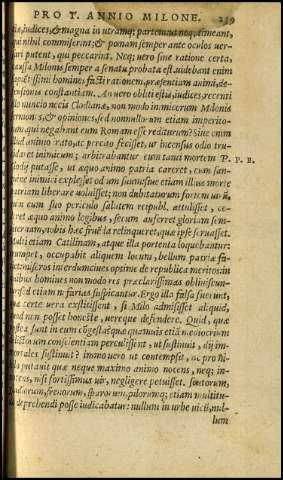 PRO T. ANNIO MILONE. 239
tis, iudices, & magna in utramq; partem ut neq; timeant,
qui nihil commiserint; & pœnam semper ante oculos uer-
sari putent, qui peccarint. Neq; uero sine ratione certa,
causa Milonis semper a senatu probata est. uidebant enim
sapientissimi homines facti rationem, præsentiam animi, de-
fensionis constantiam. An uero obliti estis, iudices, recenti
illo nuncio necis Clodianæ, non modo inimicorum Milonis
sermones, & opiniones, sed nonnullorum etiam imperito-
rum? qui negabant eum Romam esse rediturum? Siue enim
illud animo irato, ac percito fecisset, ut incensus odio tru-
cidaret inimicum; arbitrabantur eum tanti mortem P. P. B.
Clodij putasse, ut æquo animo patria careret, cum san-
guine inimici explesset odium suum: siue etiam illius morte
patriam liberare uoluisset; non dubitaturum fortem uirū,
quin cum suo periculo salutem reipubl. attulisset, ce-
deret æquo animo legibus, secum auferret gloriam sem-
piternam, nobis hæc fruēda relinqueret, quæ ipse seruasset.
Multi etiam Catilinam, atque illa portenta loquebantur:
erumpet, occupabit aliquem locum, bellum patriæ fa-
ciet. miseros interdum ciues optime de republica meritos: in
quibus homines non modo res præclarissimas obliuiscun-
tur, sed etiam nefarias suspicantur. Ergo illa falsa fuerunt,
quæ certe uera exstitissent, si Milo admisisset aliquid,
quod non posset honeste, uereque defendere. Quid, quæ
postea sunt in eum cōgesta? quæ quamuis etiā mediocrium
delictorum conscientiam perculissent, ut sustinuit, dij im-
mortales sustinuit? immo uero ut contempsit, ac pro ni-
hilo putauit? quæ neque maximo animo nocens, neq; in-
nocens, nisi fortissimus uir, negligere potuisset. scutorum,
gladiorum, frenorum, sparorum, pilorumq; etiam multitu-
do deprehendi posse iudicabatur: nullum in urbe uicū, nul-
lum